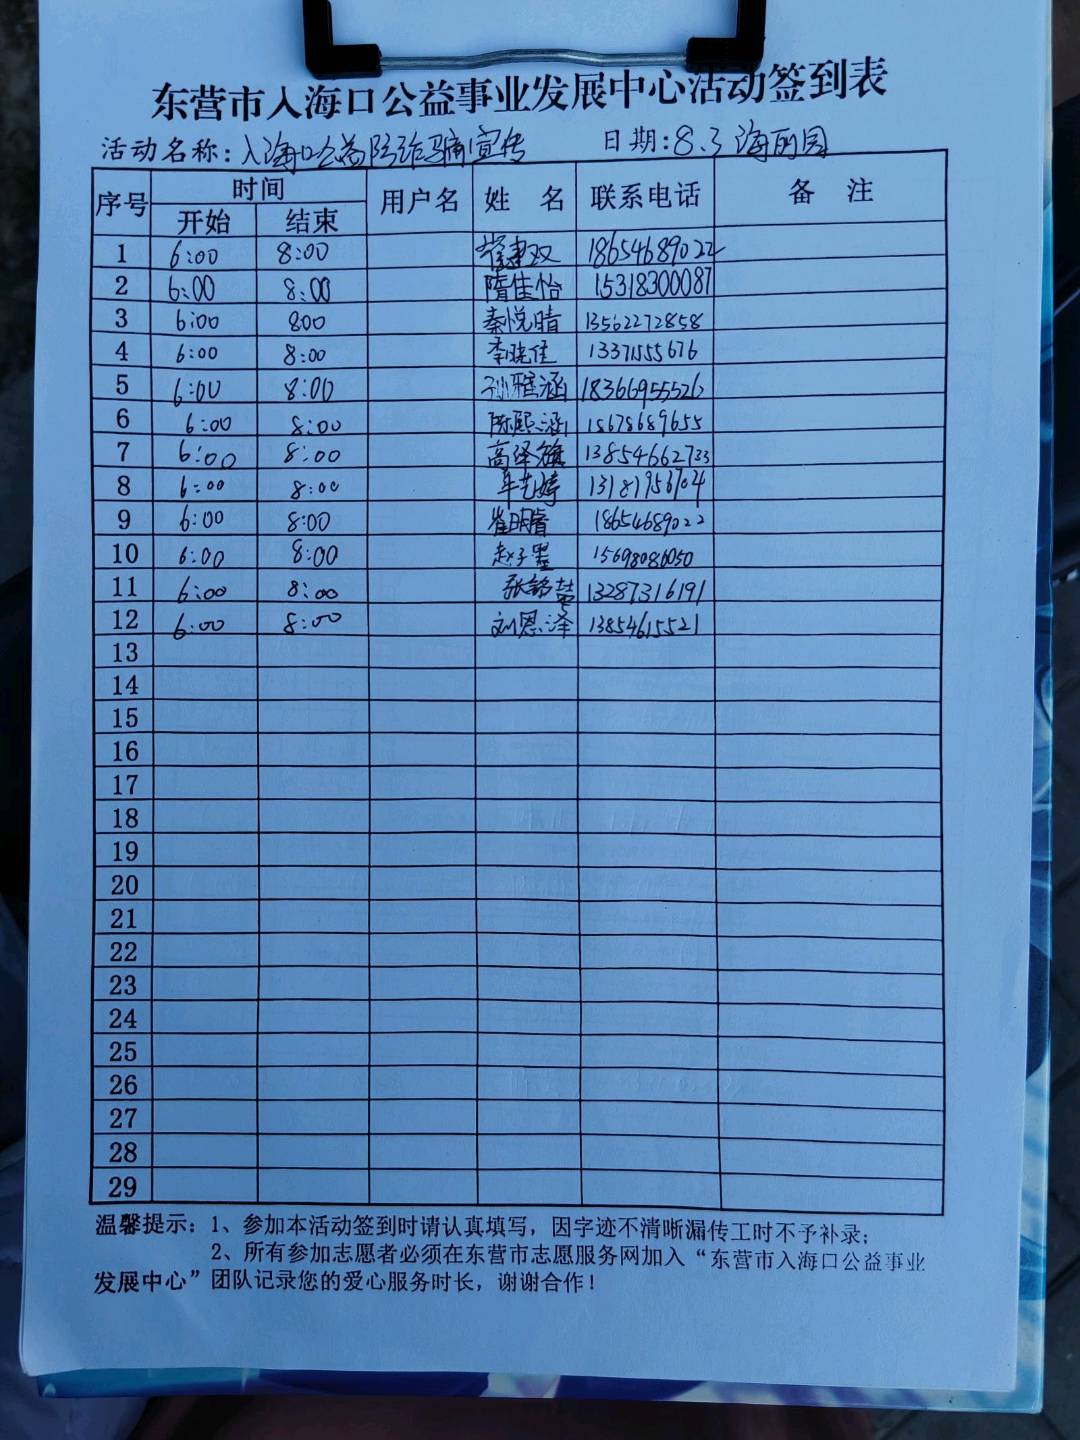 东营市入海口公益事业发展中心活动签到表
活动名称:入海口公益防诈骗宣传 日期:8.3 海丽园
序号 时间 用户名 姓 名 联系电话 备 注
开始 结束
1 6:00 8:00 崔建双 18654689022
2 6:00 8:00 隋佳怡 15318300087
3 6:00 800 秦悦晴 13562272858
4 6:00 8:00 李晓佳 13371555676
5 6:00 8:00 孙雅涵 18366955526
6 6:00 8:00 陈熙涵 15678689655
7 6:00 8:00 高泽 13854662733
8 6:00 8:00 艺婷
9 6:00 8:00 崔明睿 18654689022
10 6:00 8:00 赵子墨 15698086050
11 6:00 8:00 张 13287316191
12 6:00 8:00 刘恩泽 13854615521
13
14
15
16
17
18
19
20
21
22
23
24
25
26
27
28
29
温馨提示: 1、参加本活动签到时请认真填写,因字迹不清晰漏传工时不予补录;
2、所有参加志愿者必须在东营市志愿服务网加入“东营市入海口公益事业
发展中心”团队记录您的爱心服务时长,谢谢合作!